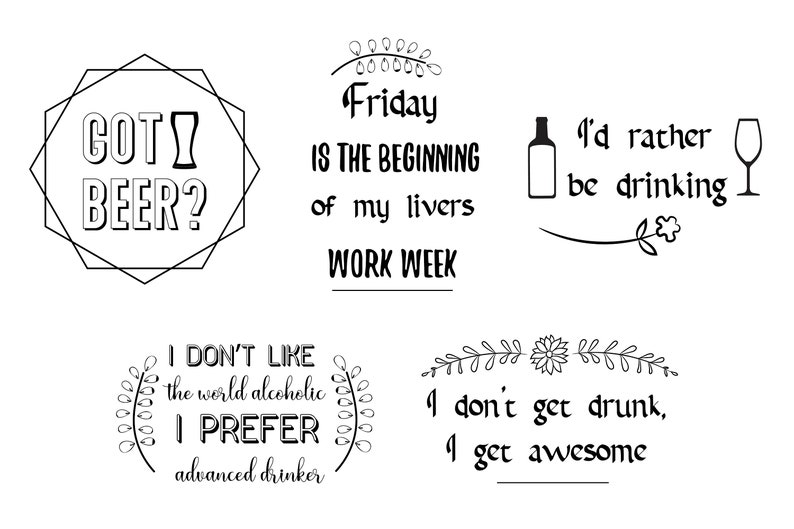 GOT
BEER?
Friday
IS THE BEGINNING
of my livers
WORK WEEK
I'd rather
be drinking
I DON'T LIKE
the world alcoholic
I PREFER
advanced drinker
I don't get drunk,
I get awesome